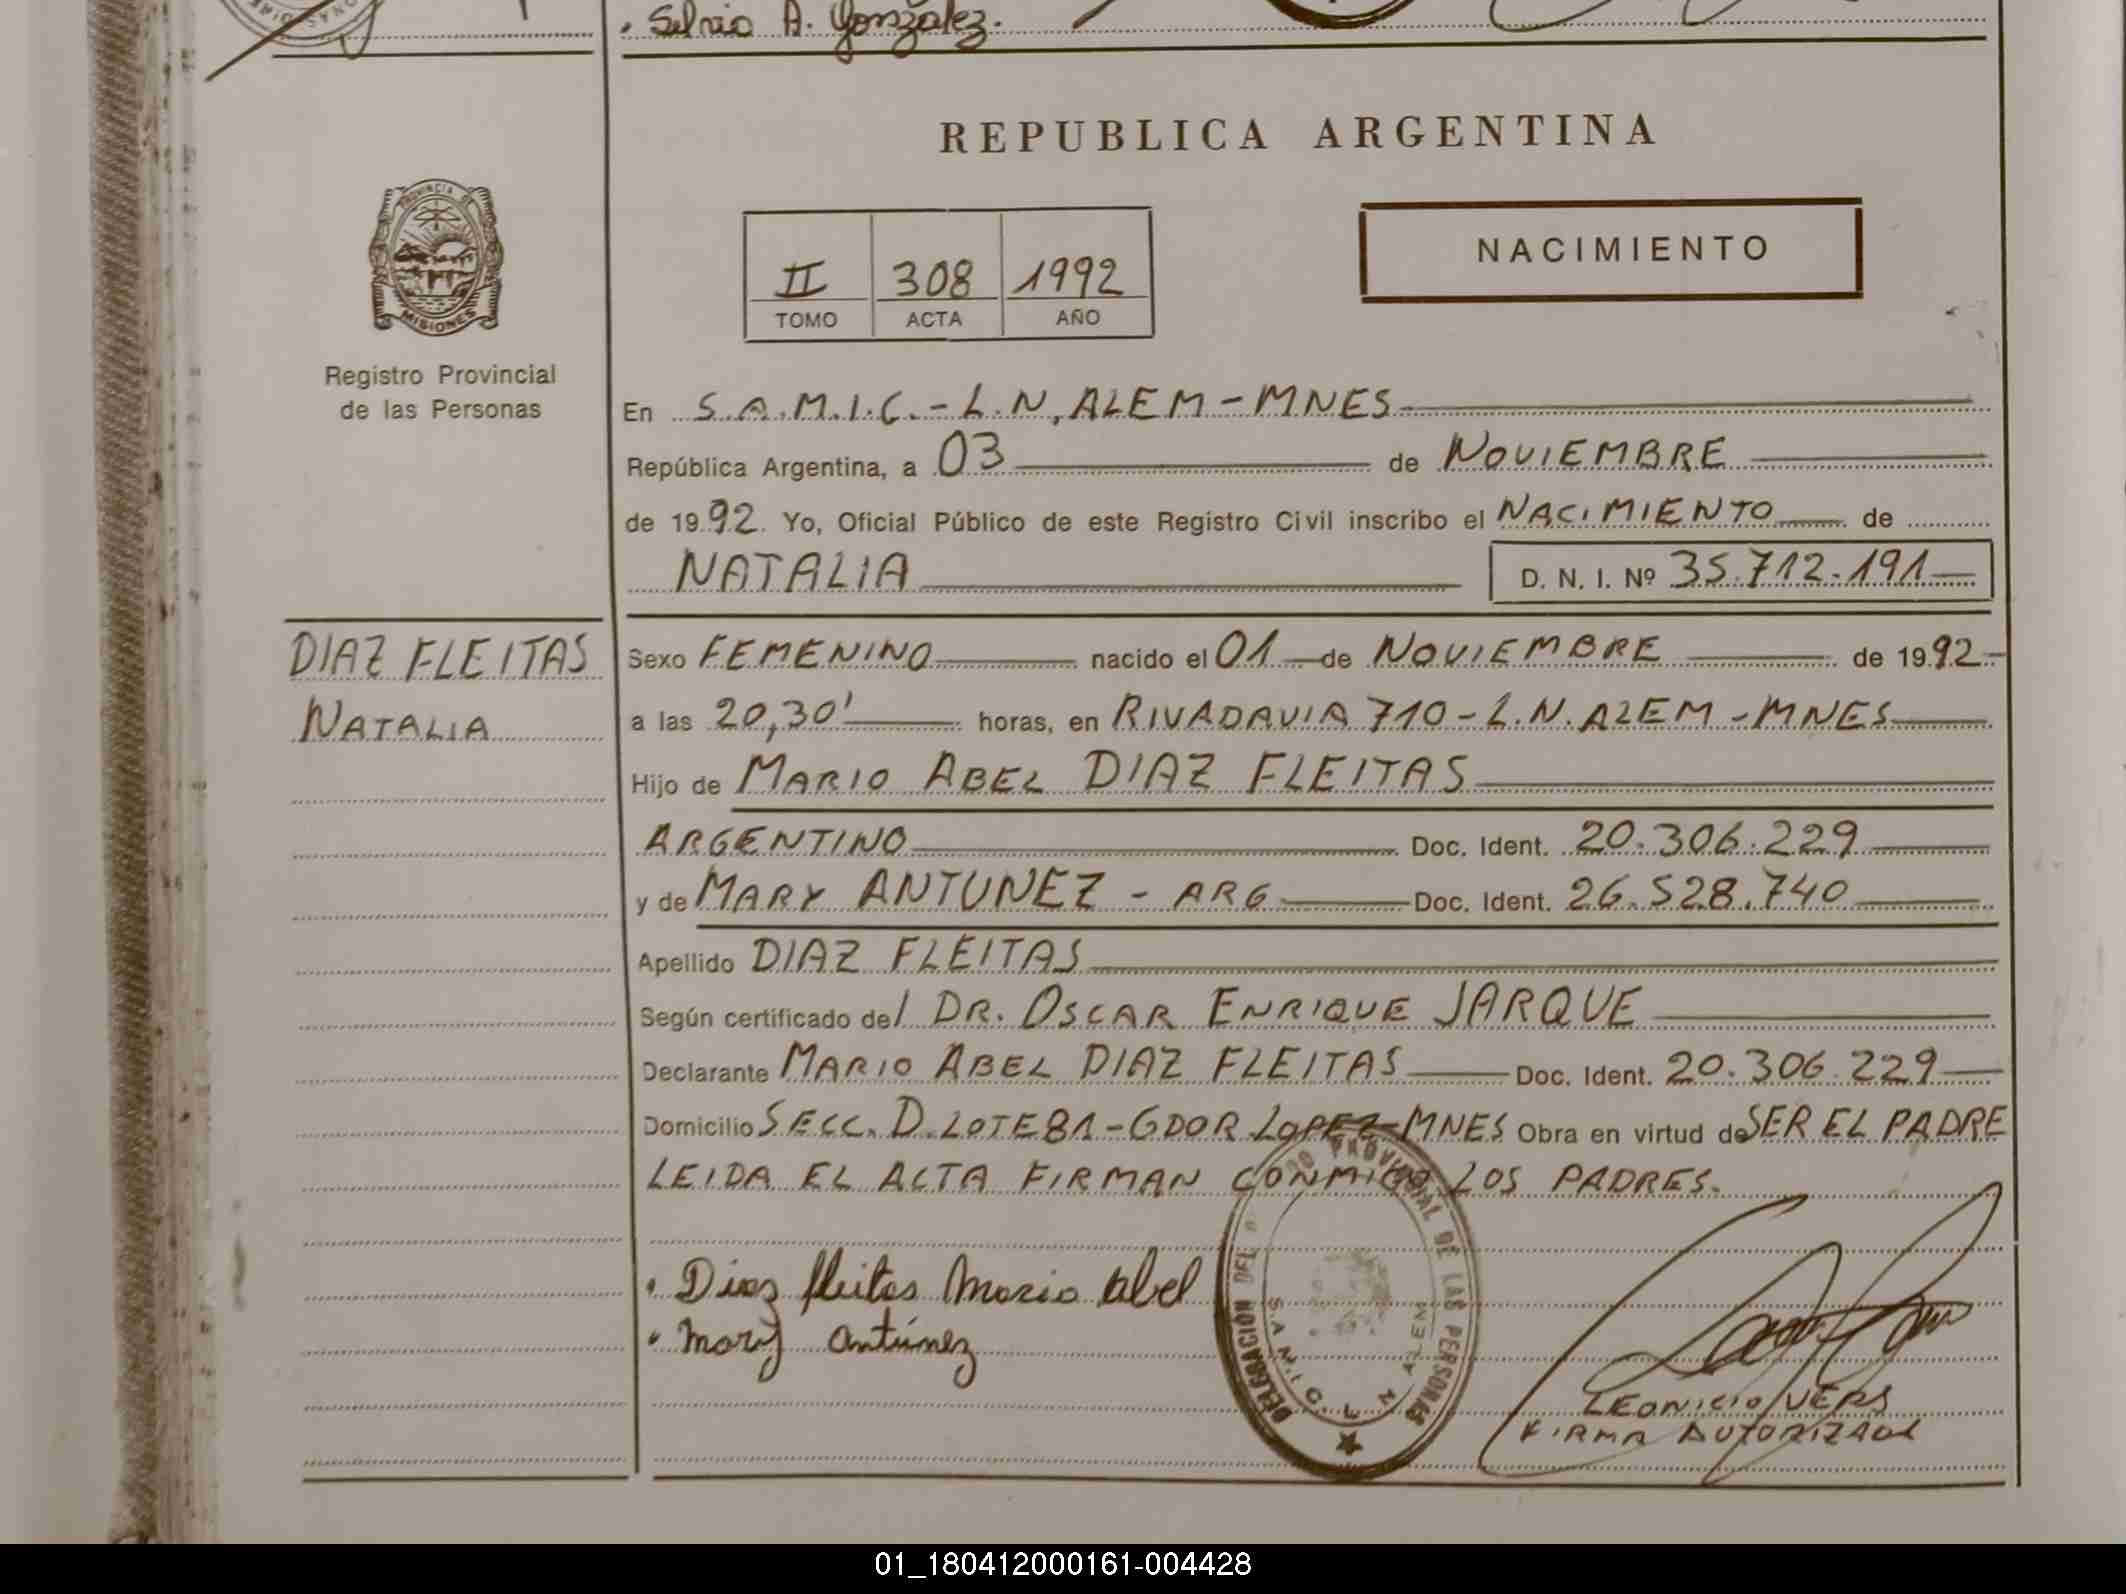 Silvia A. González.
REPUBLICA ARGENTINA
PROVINCIA DE
MISIONES
Registro Provincial
de las Personas
II 308 1992
TOMO ACTA AÑO
NACIMIENTO
En S.A.M.I.C.-L.N.ALEM-MNES
República Argentina, a 03 de NOVIEMBRE
de 1992. Yo, Oficial Público de este Registro Civil inscribo el NACIMIENTO de
NATALIA D. N. I. Nº 35.712.191
DIAZ FLEITAS
NATALIA
Sexo FEMENINO nacido el 01 de NOVIEMBRE de 1992
a las 20,30' horas, en RIVADAVIA 710-L.N.ALEM-MNES
Hijo de MARIO ABEL DIAZ FLEITAS
ARGENTINO Doc. Ident. 20.306.229
y de MARY ANTUNEZ - ARG Doc. Ident. 26.528.740
Apellido DIAZ FLEITAS
Según certificado del DR. OSCAR ENRIQUE JARQUE
Declarante MARIO ABEL DIAZ FLEITAS Doc. Ident. 20.306.229
Domicilio SECC. D. LOTE81-GDOR LOPEZ-MNES Obra en virtud de SER EL PADRE
LEIDA EL ACTA FIRMAN CONMIGO LOS PADRES.
Diaz fleitas Mario abel
Mary Antúnez
DELEGACIÓN DEL PROVINCIAL DE LAS PERSONAS
S.A.M.I.C. L N ALEM
LEONICIO VERS
FIRMA AUTORIZADA
01_180412000161-004428